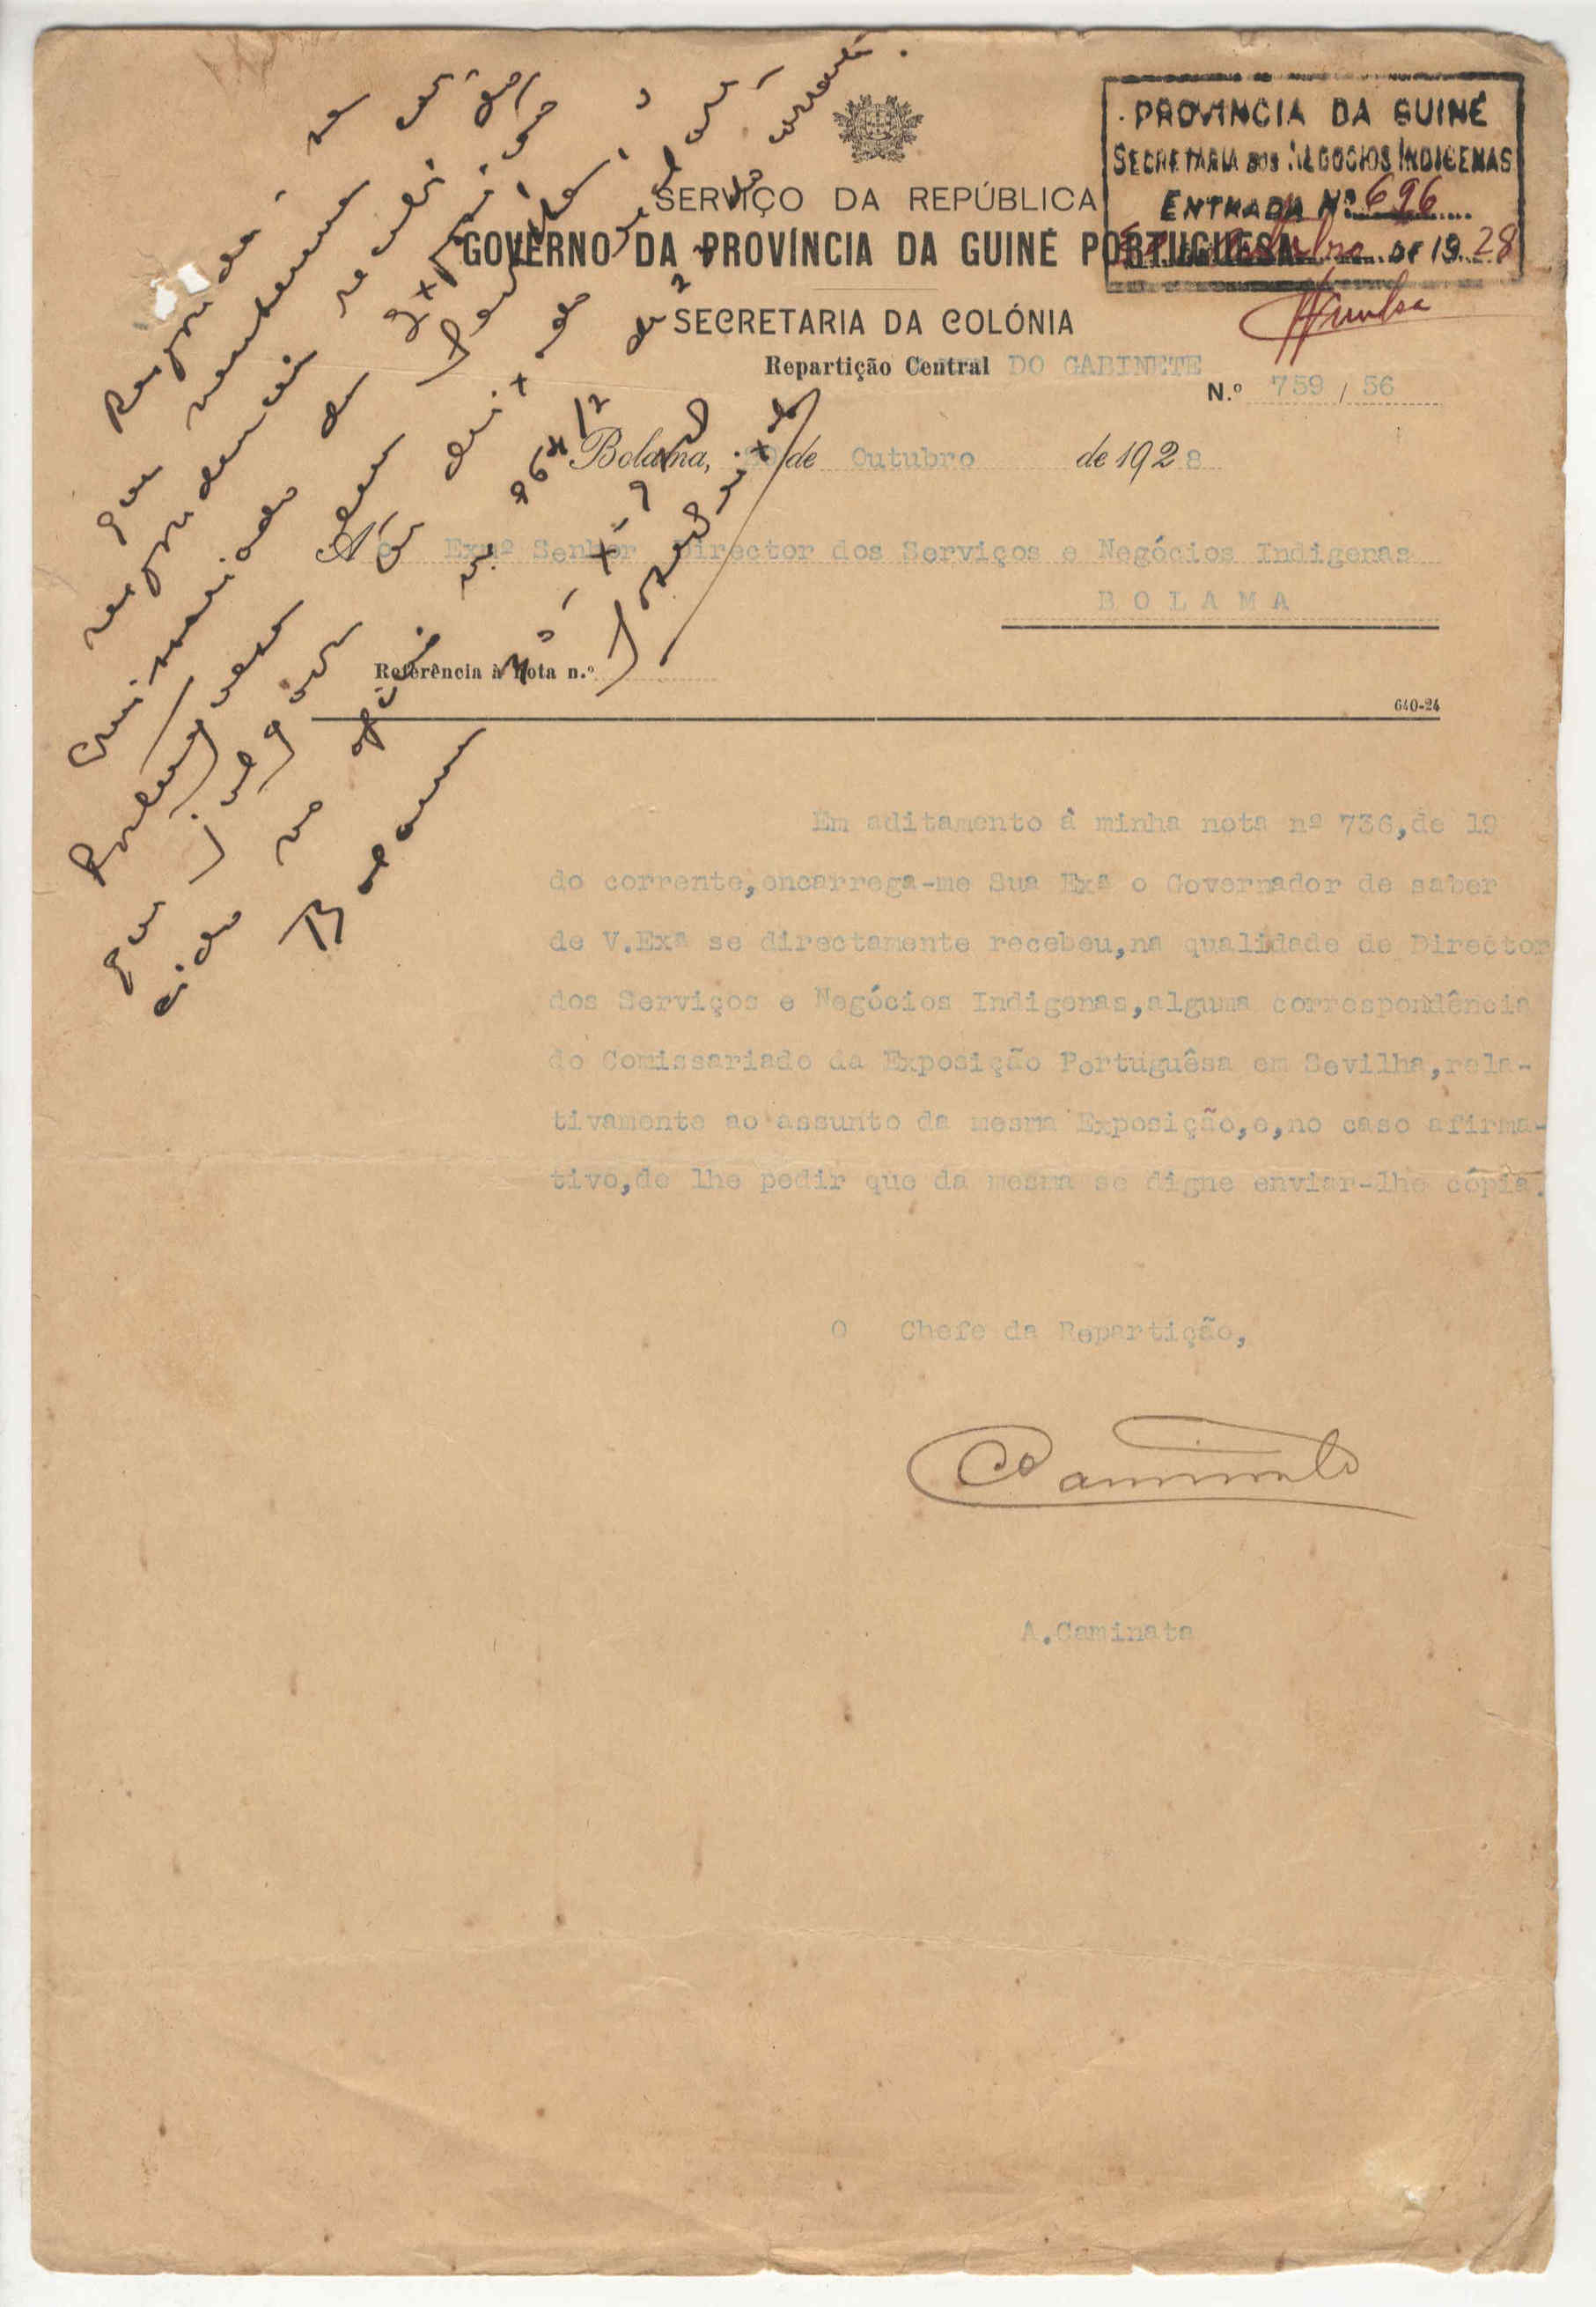 PROVINCIA DA GUINÉ
SECRETARIA DOS NEGOCIOS INDIGENAS
ENTRADA Nº 696
DE 1928
SERVIÇO DA REPÚBLICA
GOVERNO DA PROVÍNCIA DA GUINÉ PORTUGUESA
SECRETARIA DA COLÓNIA
Repartição Central DO GABINETE
N.º 759 / 56
Bolama, de Outubro de 1928
Ao Exmº Senhor Director dos Serviços e Negócios Indigenas
BOLAMA
Referência à nota n.º
640-24
Em aditamento à minha nota nº 736,de 19
do corrente,encarrega-me Sua Exª o Governador de saber
de V.Exª se directamente recebeu,na qualidade de Director
dos Serviços e Negócios Indigenas,alguma correspondência
do Comissariado da Exposição Portuguêsa em Sevilha,rela-
tivamente ao assunto da mesma Exposição,e,no caso afirma-
tivo,de lhe pedir que da mesma se digne enviar-lhe cópia.
O Chefe da Repartição,
Caminata
A.Caminata
Responda-se
que nenhuma cor-
respondencia recebi do
Comissariado da Exposição
Portuguesa em Sevilha,